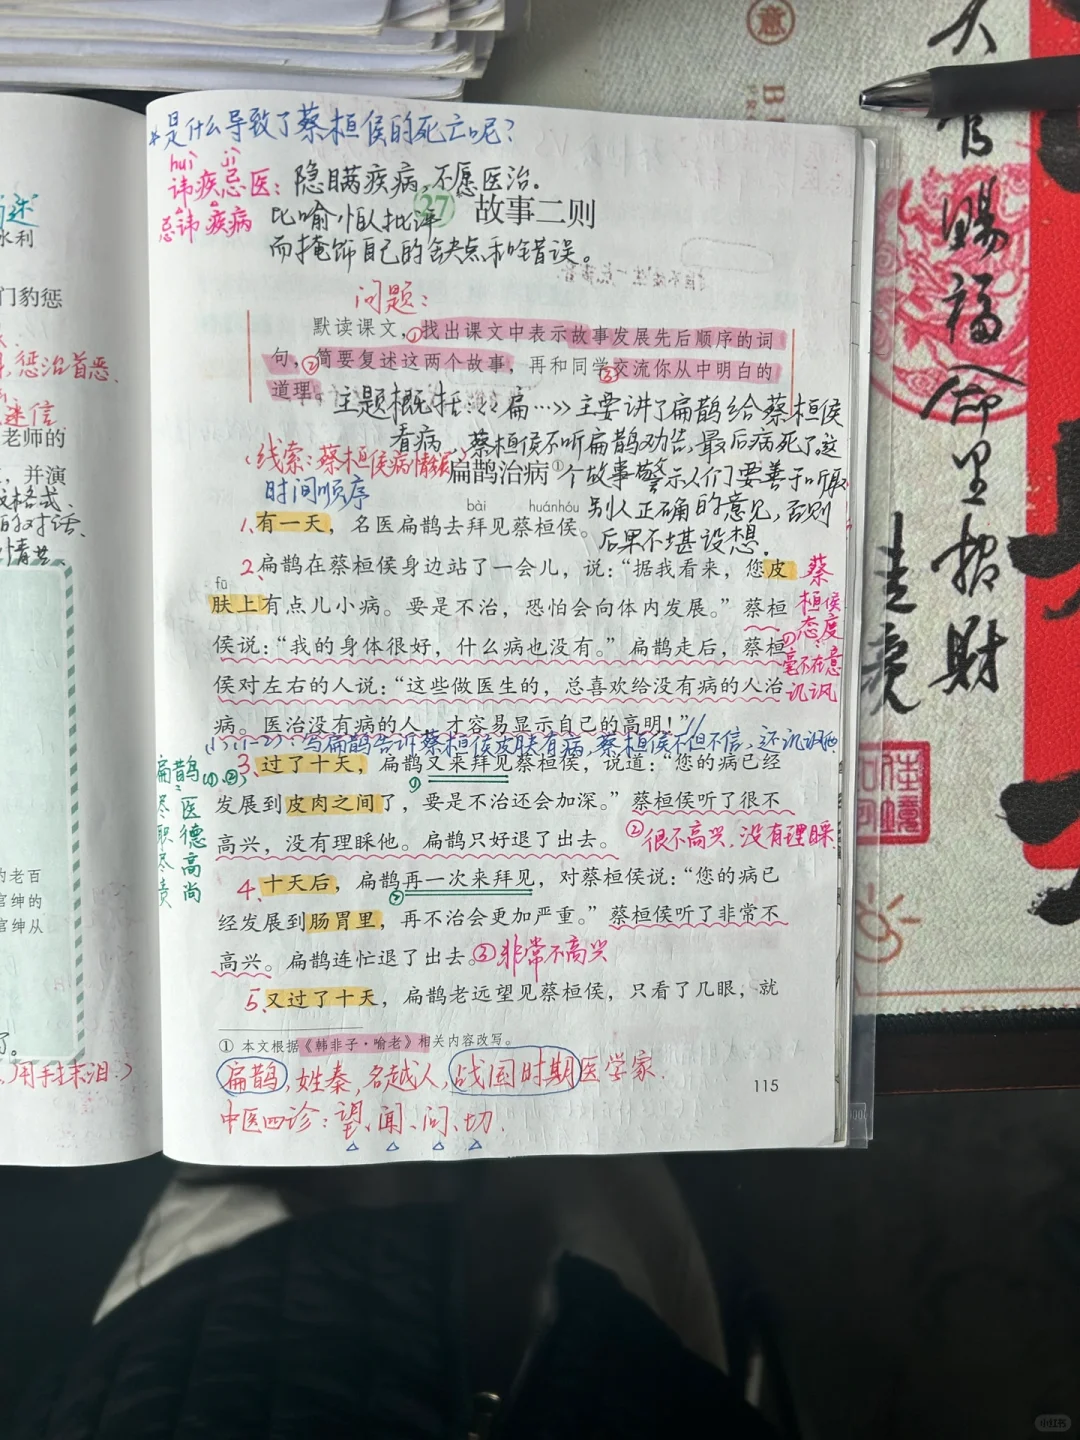 *是什么导致了蔡桓侯的死亡呢?
huì jì
讳疾忌医:隐瞒疾病,不愿医治。
忌讳 疾病 比喻怕人批评
而掩饰自己的缺点和错误。
27 故事二则
问题:
默读课文,①找出课文中表示故事发展先后顺序的词
句,②简要复述这两个故事,再和同学③交流你从中明白的
道理。
主题概括:《扁…》主要讲了扁鹊给蔡桓侯
看病,蔡桓侯不听扁鹊劝告,最后病死了。这
个故事警示人们要善于听取
别人正确的意见,否则
后果不堪设想。
(线索:蔡桓侯病情发展)
时间顺序
扁鹊治病①
bài huánhóu
1、有一天,名医扁鹊去拜见蔡桓侯。
2、扁鹊在蔡桓侯身边站了一会儿,说:“据我看来,您皮
fū
肤上有点儿小病。要是不治,恐怕会向体内发展。”蔡桓
侯说:“我的身体很好,什么病也没有。”扁鹊走后,蔡桓
侯对左右的人说:“这些做医生的,总喜欢给没有病的人治
病。医治没有病的人,才容易显示自己的高明!”
蔡
桓侯
态度
①:
毫不在意
讥讽
(1-2):写扁鹊告诉蔡桓侯皮肤有病,蔡桓侯不但不信,还讥讽他
3、过了十天,扁鹊又来拜见蔡桓侯,说道:“您的病已经
①
发展到皮肉之间了,要是不治还会加深。”蔡桓侯听了很不
高兴,没有理睬他。扁鹊只好退了出去。
②很不高兴,没有理睬
扁鹊①②:
尽职尽责
医德高尚
4、十天后,扁鹊再一次来拜见,对蔡桓侯说:“您的病已
②
经发展到肠胃里,再不治会更加严重。”蔡桓侯听了非常不
高兴。扁鹊连忙退了出去。③非常不高兴
5、又过了十天,扁鹊老远望见蔡桓侯,只看了几眼,就
① 本文根据《韩非子·喻老》相关内容改写。
扁鹊,姓秦,名越人,战国时期医学家.
中医四诊:望、闻、问、切.
115
水利
门豹惩
惩治首恶、
迷信
老师的
,并演
的对话、
的老百
官绅的
官绅从
了。
用手抹泪。)
意
官赐福
命里招财
走
小红书